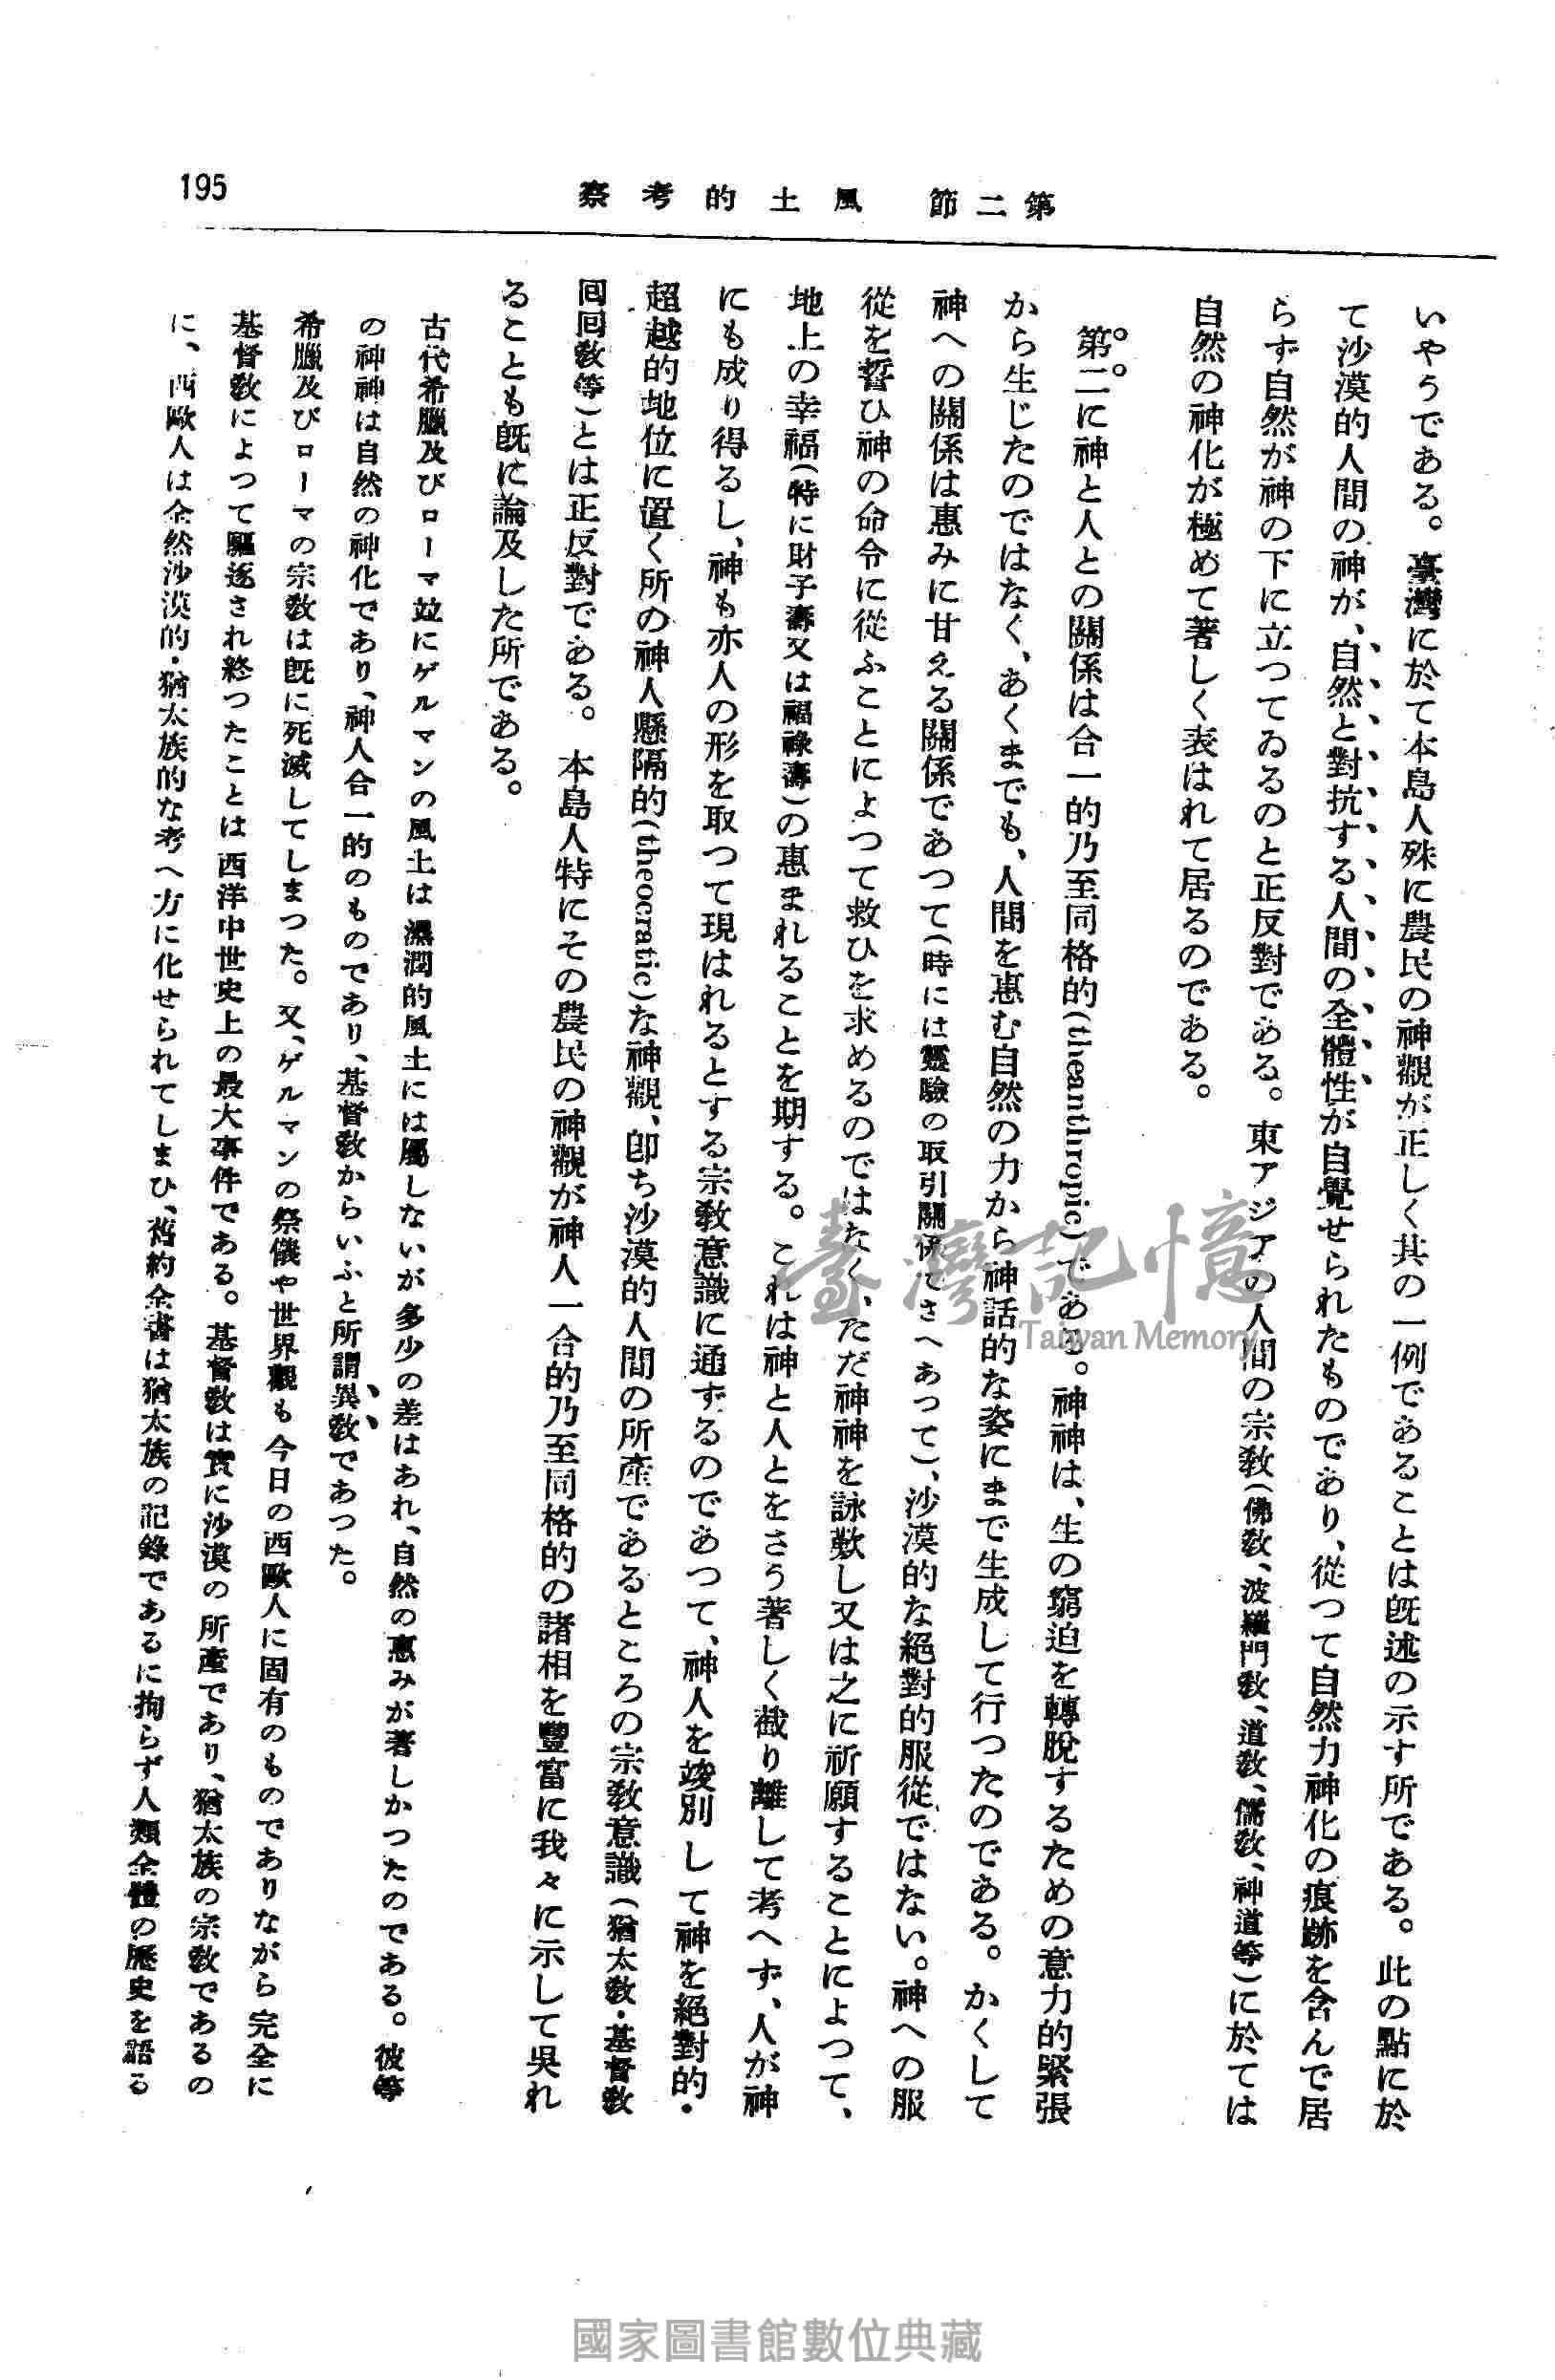 195
第二節 風土的考察
いやうである。臺灣に於て本島人殊に農民の神觀が正しく其の一例であることは既述の示す所である。此の點に於
て沙漠的人間の神が、自然と對抗する人間の全體性が自覺せられたものであり、從つて自然力神化の痕跡を含んで居
らず自然が神の下に立つてゐるのと正反對である。東アジアの人間の宗敎(佛敎、波羅門敎、道敎、儒敎、神道等)に於ては
自然の神化が極めて著しく表はれて居るのである。
第二に神と人との關係は合一的乃至同格的(theanthropic)である。神神は、生の窮迫を轉脫するための意力的緊張
から生じたのではなく、あくまでも、人間を惠む自然の力から神話的な姿にまで生成して行つたのである。かくして
神への關係は惠みに甘える關係であつて(時には靈驗の取引關係でさへあつて)、沙漠的な絕對的服從ではない。神への服
從を誓ひ神の命令に從ふことによつて救ひを求めるのではなく、ただ神神を詠歎し又は之に祈願することによつて、
地上の幸福(特に財子壽又は福祿壽)の惠まれることを期する。これは神と人とをさう著しく截り離して考へず、人が神
にも成り得るし、神も亦人の形を取つて現はれるとする宗敎意識に通ずるのであつて、神人を竣別して神を絕對的・
超越的地位に置く所の神人懸隔的(theocratic)な神觀、卽ち沙漠的人間の所產であるところの宗敎意識(猶太敎・基督敎
回回敎等)とは正反對である。本島人特にその農民の神觀が神人一合的乃至同格的の諸相を豐富に我々に示して吳れ
ることも既に論及した所である。
古代希臘及びローマ竝にゲルマンの風土は濕潤的風土には屬しないが多少の差はあれ、自然の惠みが著しかつたのである。彼等
の神神は自然の神化であり、神人合一的のものであり、基督敎からいふと所謂異敎であつた。
希臘及びローマの宗敎は既に死滅してしまつた。又、ゲルマンの祭儀や世界觀も今日の西歐人に固有のものでありながら完全に
基督敎によつて驅逐され終つたことは西洋中世史上の最大事件である。基督敎は實に沙漠の所產であり、猶太族の宗敎であるの
に、西歐人は全然沙漠的・猶太族的な考へ方に化せられてしまひ、舊約全書は猶太族の記錄であるに拘らず人類全體の歷史を語る
臺灣記憶
Taiwan Memory
國家圖書館數位典藏